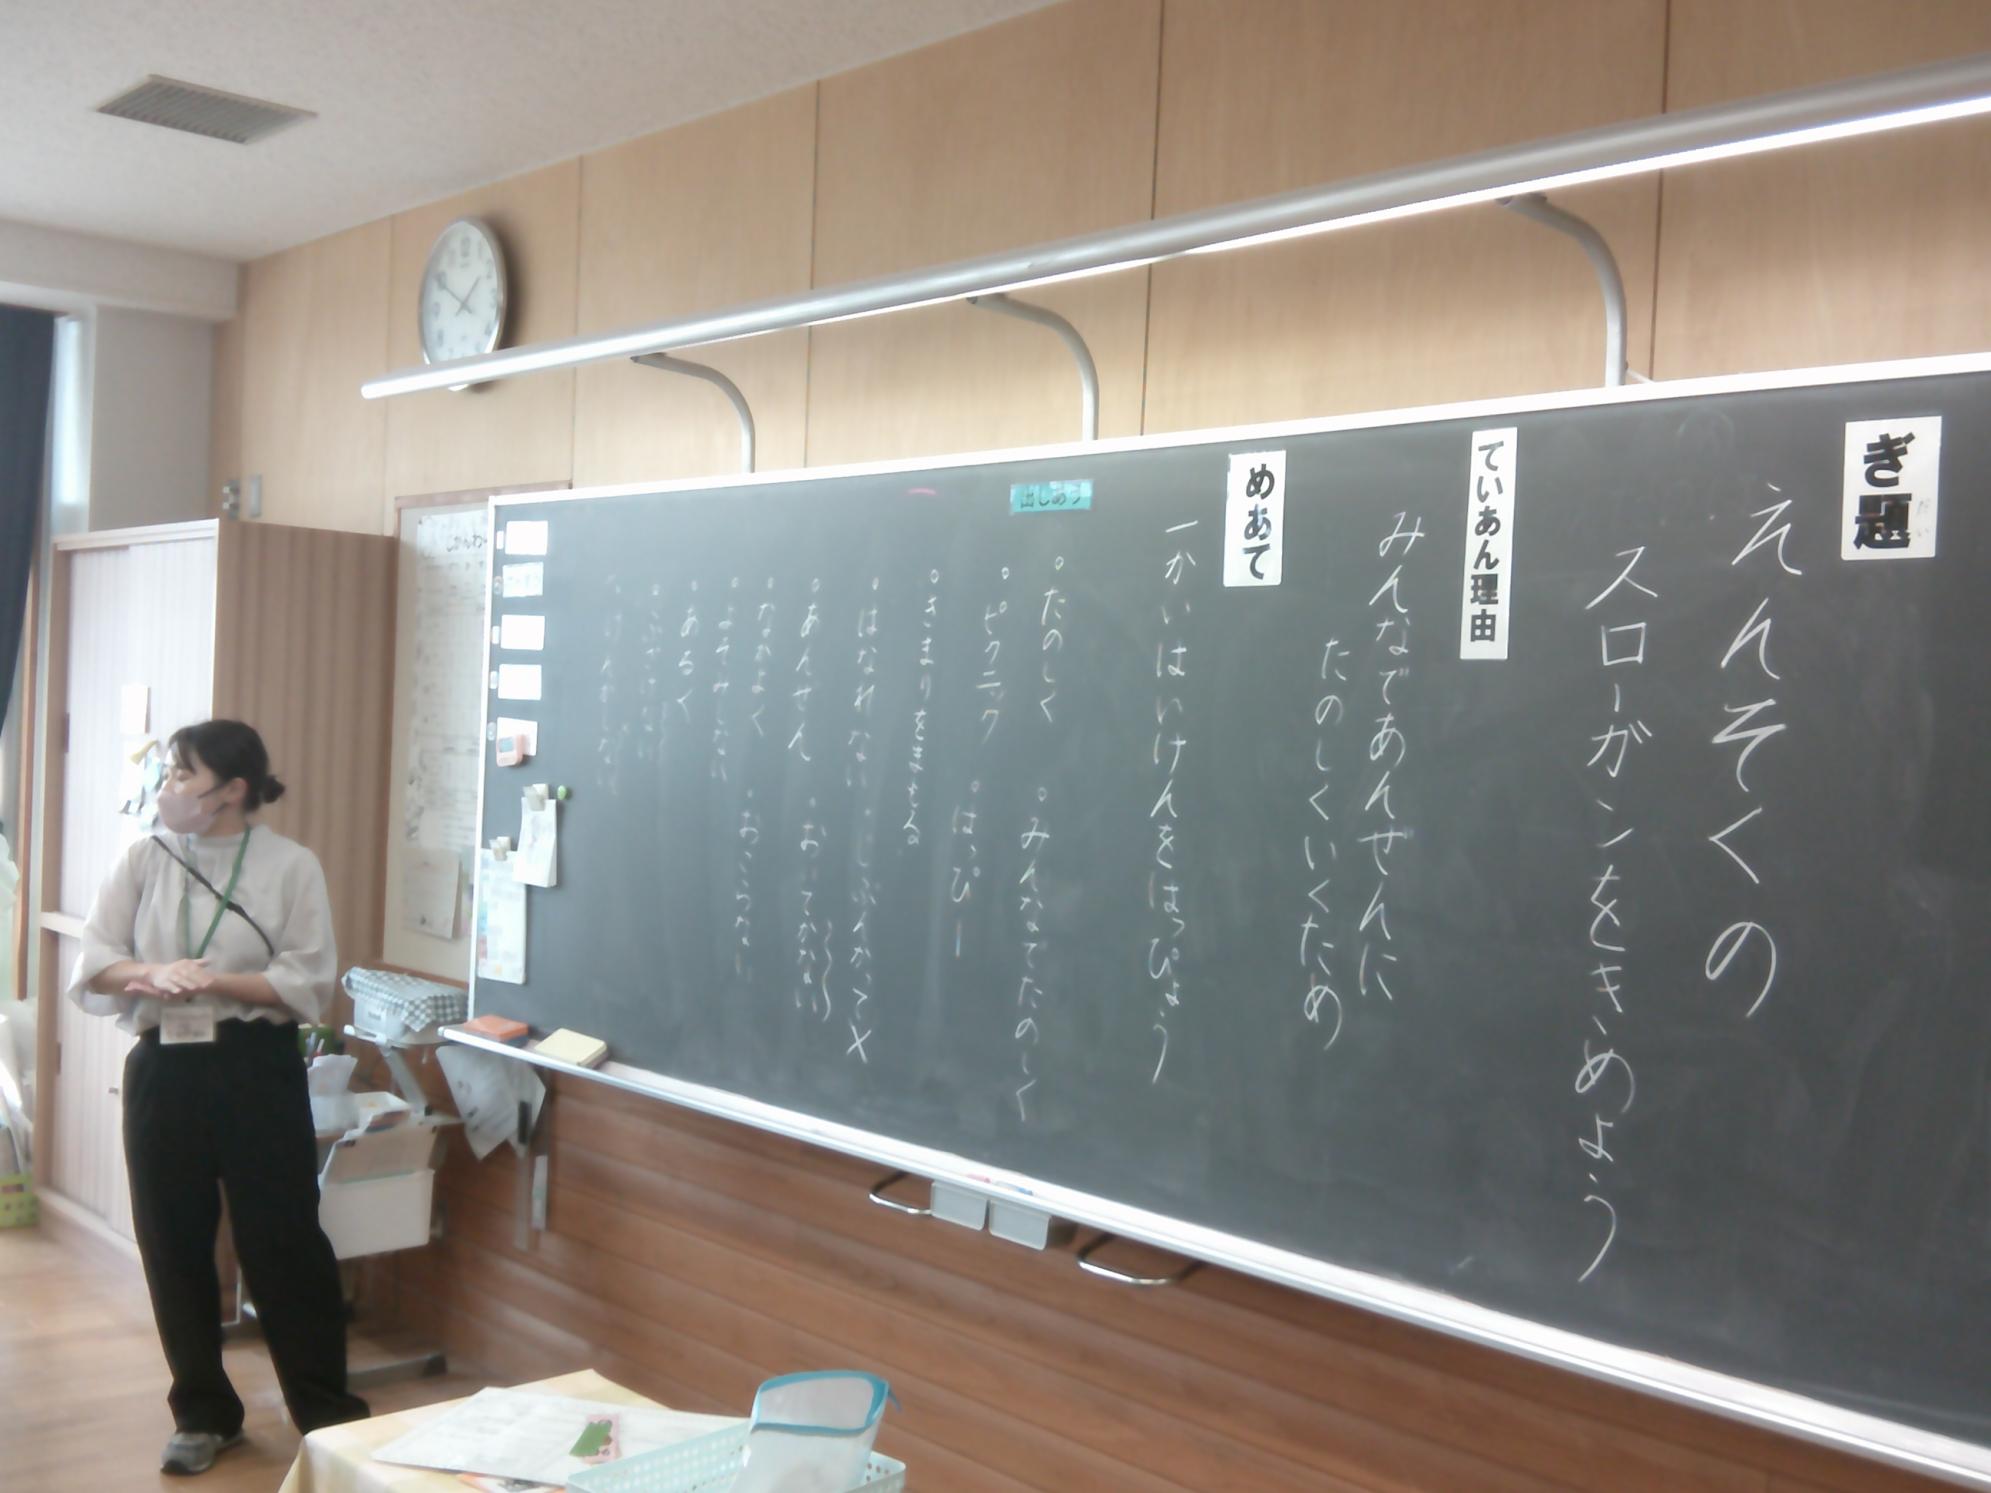 ぎ題
えんそくの
スローガンをきめよう
ていあん理由
みんなであんぜんに
たのしくいくため
めあて
一かいはいけんをはっぴょう
出しあう
。たのしく
。みんなでたのしく
。ピクニック
。はっぴー
。きまりをまもる
。はなれない
。あんぜん
。おいてかない
。なかよく
。よそみしない
。おこらない
。あるく